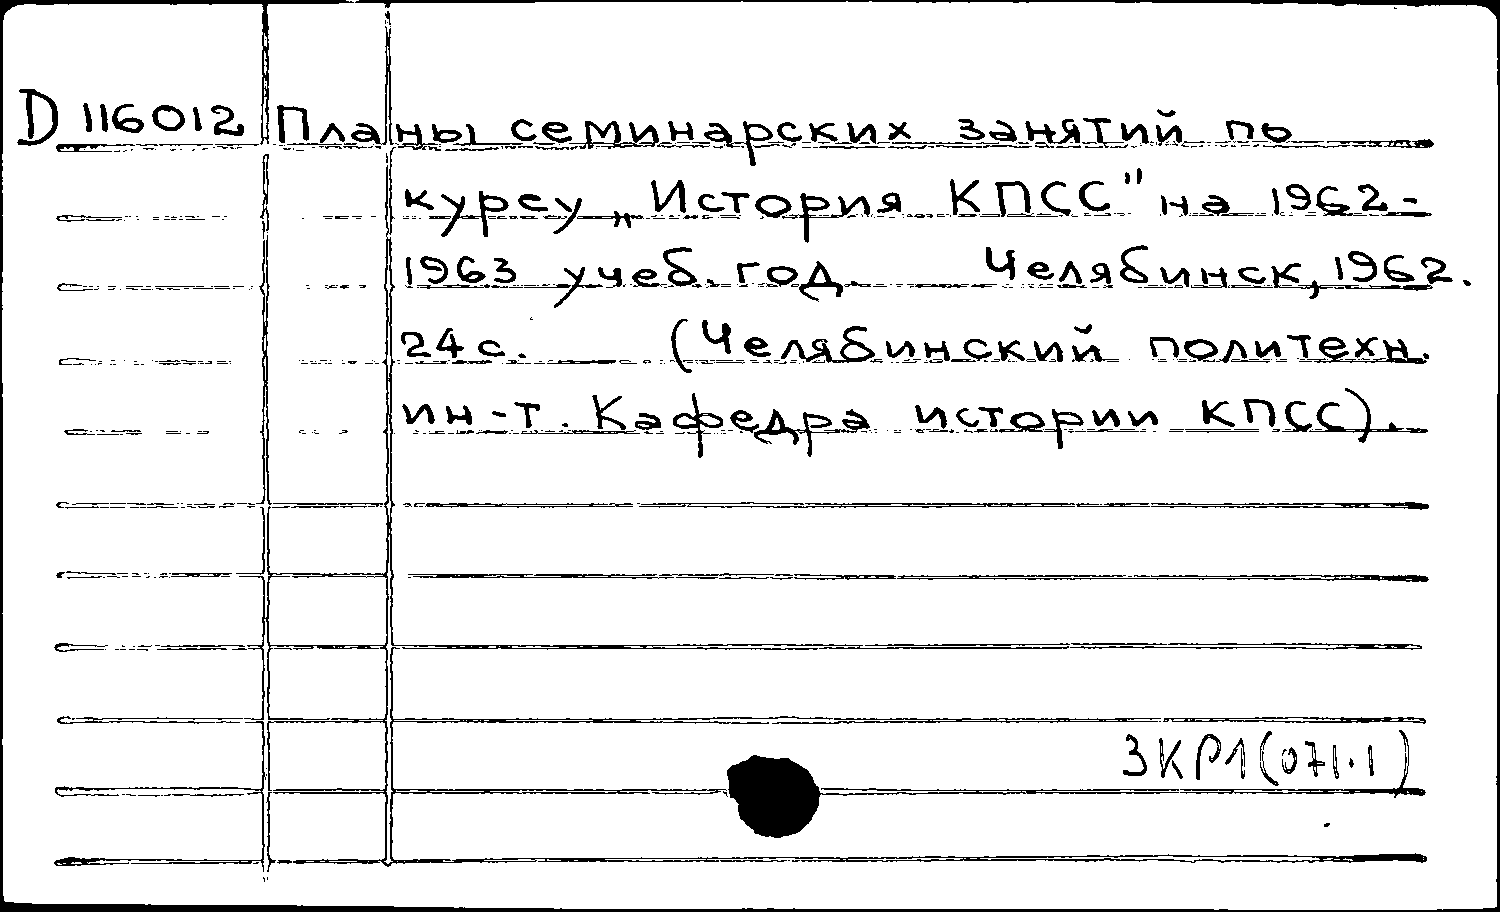 D 116012 Планы семинарских занятий по
курсу „История КПСС" на 1962-
1963 учеб. год. Челябинск, 1962.
24 с. (Челябинский политехн.
ин-т. Кафедра истории КПСС).
3КР1(071.1)